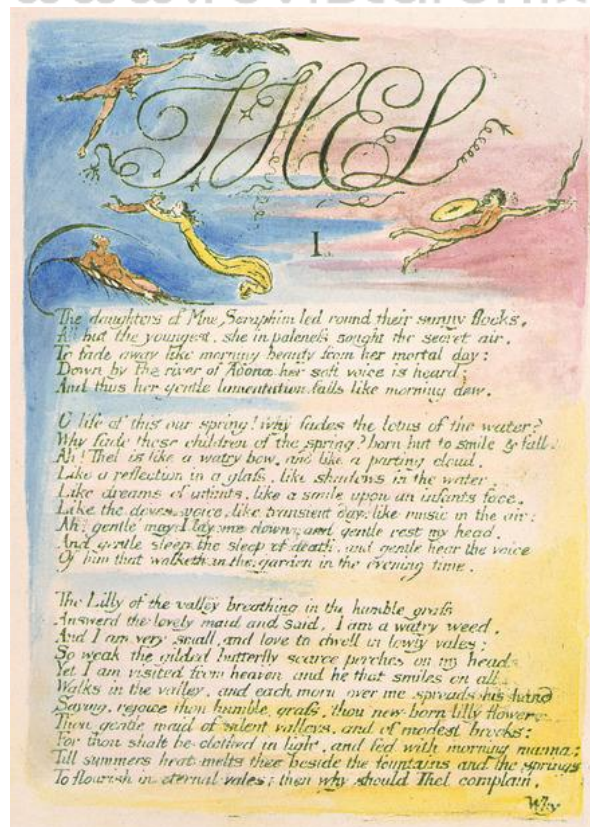 THEL
I.
The daughters of Mne Seraphim led round their sunny flocks,
All but the youngest, she in paleneſs sought the secret air,
To fade away like morning beauty from her mortal day:
Down by the river of Adona her soft voice is heard:
And thus her gentle lamentation falls like morning dew.
O life of this our spring! why fades the lotus of the water?
Why fade these children of the spring? born but to smile & fall.
Ah! Thel is like a watry bow, and like a parting cloud,
Like a reflection in a glaſs, like shadows in the water,
Like dreams of infants, like a smile upon an infants face,
Like the doves voice, like transient day, like music in the air:
Ah! gentle may I lay me down, and gentle rest my head,
And gentle sleep the sleep of death, and gentle hear the voice
Of him that walketh in the garden in the evening time.
The Lilly of the valley breathing in the humble graſs
Answerd the lovely maid and said; I am a watry weed,
And I am very small, and love to dwell in lowly vales:
So weak the gilded butterfly scarce perches on my head
Yet I am visited from heaven and he that smiles on all
Walks in the valley, and each morn over me spreads his hand
Saying, rejoice thou humble graſs, thou new-born lilly flower,
Thou gentle maid of silent valleys, and of modest brooks:
For thou shalt be clothed in light, and fed with morning manna:
Till summers heat melts thee beside the fountains and the springs
To flourish in eternal vales: then why should Thel complain,
Why